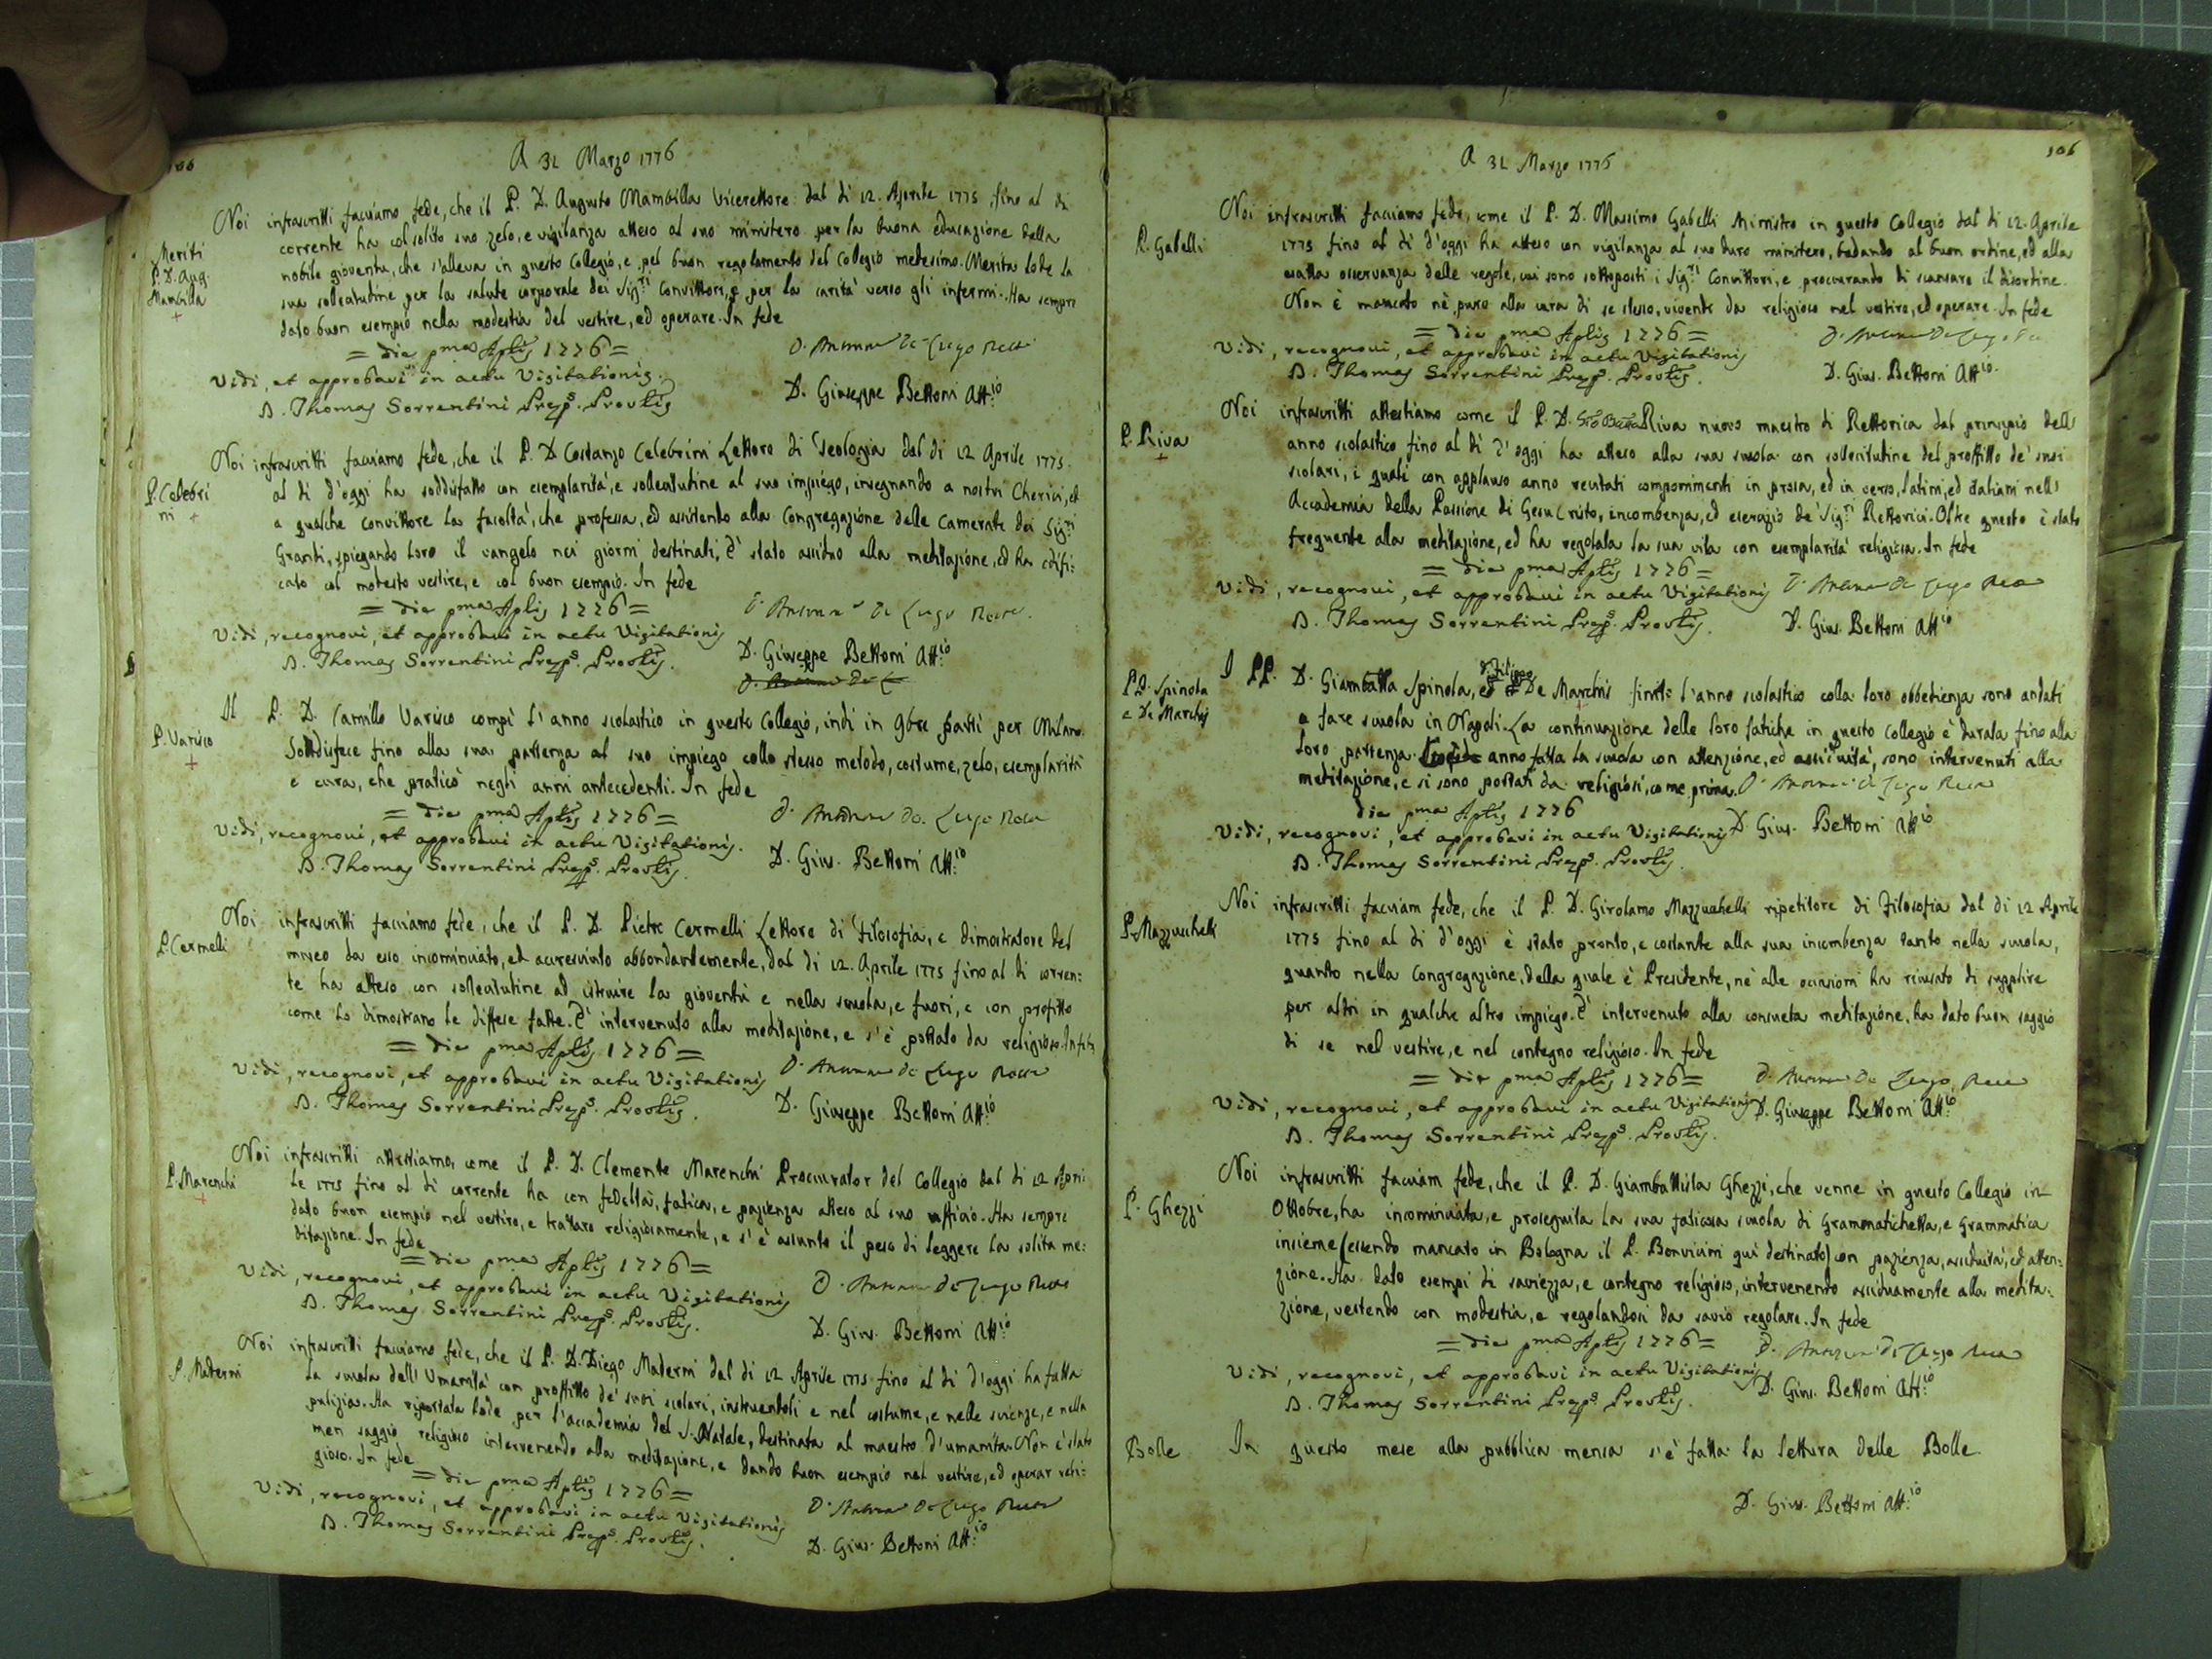 A 31 Marzo 1776
Meriti
P. D. Aug.
Mambilla
Noi infrascritti facciamo fede, che il P. D. Augusto Mambilla Vicerettore dal dì 12. Aprile 1775 fino al dì
corrente ha col solito suo zelo, e vigilanza atteso al suo ministero per la buona educazione della
nobile gioventù, che s'alleva in questo Collegio, e pel buon regolamento del Collegio medesimo. Merita lode la
sua sollecitudine per la salute corporale dei Sig.ri Convittori, e per la carità verso gli infermi. Ha sempre
dato buon esempio nella modestia del vestire, ed operare. In fede
= die pma Aplis 1776 =
Vidi, et approbavi in actu Visitationis.
D. Thomas Sorrentini Præps. Provlis
D. Giuseppe Bettoni Att.io
P. Celebri
ni
Noi infrascritti facciamo fede, che il P. D. Costanzo Celebrini Lettore di Teologia dal dì 12 Aprile 1775
al dì d'oggi ha soddisfatto con esemplarità, e sollecitudine al suo impiego, insegnando a nostri Cherici, ed
a qualche convittore la facoltà, che professa, ed assistendo alla Congregazione delle Camerate dei Sig.ri
Grandi, spiegando loro il vangelo nei giorni destinati; È stato assiduo alla meditazione, ed ha edifi:
cato col modesto vestire, e col buon esempio. In fede
= die pma Aplis 1776 =
Vidi, recognovi, et approbavi in actu Visitationis
D. Thomas Sorrentini Præps. Provlis.
D. Antonio De Lugo Rett.re
D. Giuseppe Bettoni Att.io
P. Varisco
Il P. D. Camillo Varisco compì l'anno scolastico in questo Collegio, indi in 9bre partì per Milano.
Soddisfece fino alla sua partenza al suo impiego collo stesso metodo, costume, zelo, esemplarità
e cura, che praticò negli anni antecedenti. In fede
= die pma Aplis 1776 =
Vidi, recognovi, et approbavi in actu Visitationis.
D. Thomas Sorrentini Præps. Provlis.
D. Antonio De Lugo Rett.re
D. Gius. Bettoni Att.io
P. Cermelli
Noi infrascritti facciamo fede, che il P. D. Pietro Cermelli Lettore di Filosofia, e dimostratore del
museo da esso incominciato, ed accresciuto abbondantemente, dal dì 12. Aprile 1775 fino al dì corren:
te ha atteso con sollecitudine ad istruire la gioventù e nella scuola, e fuori, e con profitto
come lo dimostrano le difese fatte. È intervenuto alla meditazione, e s'è portato da religioso. In fede
= die pma Aplis 1776 =
Vidi, recognovi, et approbavi in actu Visitationis
D. Thomas Sorrentini Præps. Provlis.
D. Antonio De Lugo Rett.re
D. Giuseppe Bettoni Att.io
P. Marenchi
Noi infrascritti attestiamo, come il P. D. Clemente Marenchi Procurator del Collegio dal dì 12 Apri:
le 1775 fino al dì corrente ha con fedeltà, fatica, e pazienza atteso al suo ufficio. Ha sempre
dato buon esempio nel vestire, e trattare religiosamente, e s'è assunto il peso di leggere la solita me:
ditazione. In fede
= die pma Aplis 1776 =
Vidi, recognovi, et approbavi in actu Visitationis
D. Thomas Sorrentini Præps. Provlis.
D. Antonio De Lugo Rett.re
D. Gius. Bettoni Att.io
P. Maderni
Noi infrascritti facciamo fede, che il P. D. Diego Maderni dal dì 12 Aprile 1775 fino al dì d'oggi ha fatta
la scuola dell'Umanità con proffitto de' suoi scolari, instruendoli e nel costume, e nelle scienze, e nella
pulizia. Ha riportata lode per l'accademia del S. Natale, destinata al maestro d'umanità. Non è stato
men saggio religioso intervenendo alla meditazione, e dando buon esempio nel vestire, ed operar reli:
gioso. In fede
= die pma Aplis 1776 =
Vidi, recognovi, et approbavi in actu Visitationis
D. Thomas Sorrentini Præps. Provlis.
D. Antonio De Lugo Rett.re
D. Gius. Bettoni Att.io
106
A 31 Marzo 1776
P. Gabelli
Noi infrascritti facciamo fede, come il P. D. Massimo Gabelli Ministro in questo Collegio dal dì 12. Aprile
1775 fino al dì d'oggi ha atteso con vigilanza al suo duro ministero, badando al buon ordine, ed alla
esatta osservanza delle regole, cui sono sottoposti i Sig.ri Convittori, e procurando di scansare il disordine.
Non è mancato nè pure alla cura di se stesso, vivente da religioso nel vestire, ed operare. In fede
= die pma Aplis 1776 =
Vidi, recognovi, et approbavi in actu Visitationis
D. Thomas Sorrentini Præps. Provlis.
D. Gius. Bettoni Att.io
P. Riva
Noi infrascritti attestiamo come il P. D. Gio Batta Riva nuovo maestro di Rettorica dal principio dell'
anno scolastico fino al dì d'oggi ha atteso alla sua scuola con sollecitudine del proffitto de' suoi
scolari, i quali con applauso anno recitati componimenti in prosa, ed in verso, latini, ed italiani nell'
Accademia della Passione di Gesu Cristo, incombenza, ed esercizio de' Sig.ri Rettorici. Oltre questo è stato
frequente alla meditazione, ed ha regolata la sua vita con esemplarità religiosa. In fede
= die pma Aplis 1776 =
Vidi, recognovi, et approbavi in actu Visitationis
D. Thomas Sorrentini Præps. Provlis.
D. Antonio De Lugo Rett.re
D. Gius. Bettoni Att.io
PD. Spinola
e De Marchis
I PP. D. Giambatta Spinola, ed D. Filippo De Marchis finito l'anno scolastico colla loro obbedienza sono andati
a fare scuola in Napoli. La continuazione delle loro fatiche in questo Collegio è durata fino alla
loro partenza. anno fatta la scuola con attenzione, ed assiduità, sono intervenuti alla
meditazione, e si sono portati da religiosi, come prima. D. Antonio De Lugo Rett.re
die pma Aplis 1776
Vidi, recognovi, et approbavi in actu Visitationis
D. Gius. Bettoni Att.io
D. Thomas Sorrentini Præps. Provlis.
P. Mazzucchelli
Noi infrascritti facciam fede, che il P. D. Girolamo Mazzucchelli ripetitore di Filosofia dal dì 12 Aprile
1775 fino al dì d'oggi è stato pronto, e costante alla sua incombenza tanto nella scuola,
quanto nella Congregazione, della quale è Presidente, nè alle occasioni ha ricusato di supplire
per altri in qualche altro impiego. È intervenuto alla consueta meditazione, ha dato buon saggio
di se nel vestire, e nel contegno religioso. In fede
= die pma Aplis 1776 =
Vidi, recognovi, et approbavi in actu Visitationis
D. Thomas Sorrentini Præps. Provlis.
D. Antonio De Lugo Rett.re
D. Giuseppe Bettoni Att.io
P. Ghezzi
Noi infrascritti facciam fede, che il P. D. Giambattista Ghezzi, che venne in questo Collegio in
Ottobre, ha incominciata, e proseguita la sua faticosa scuola di Grammatichetta, e Grammatica
insieme (essendo mancato in Bologna il P. Bonvicini quì destinato) con pazienza, assiduità, ed atten:
zione. Ha dato esempi di saviezza, e contegno religioso, intervenendo assiduamente alla medita:
zione, vestendo con modestia, e regolandosi da savio regolare. In fede
= die pma Aplis 1776 =
Vidi, recognovi, et approbavi in actu Visitationis
D. Thomas Sorrentini Præps. Provlis.
D. Antonio De Lugo Rett.re
D. Gius. Bettoni Att.io
Bolle
In questo mese alla pubblica mensa s'è fatta la lettura delle Bolle
D. Gius. Bettoni Att.io